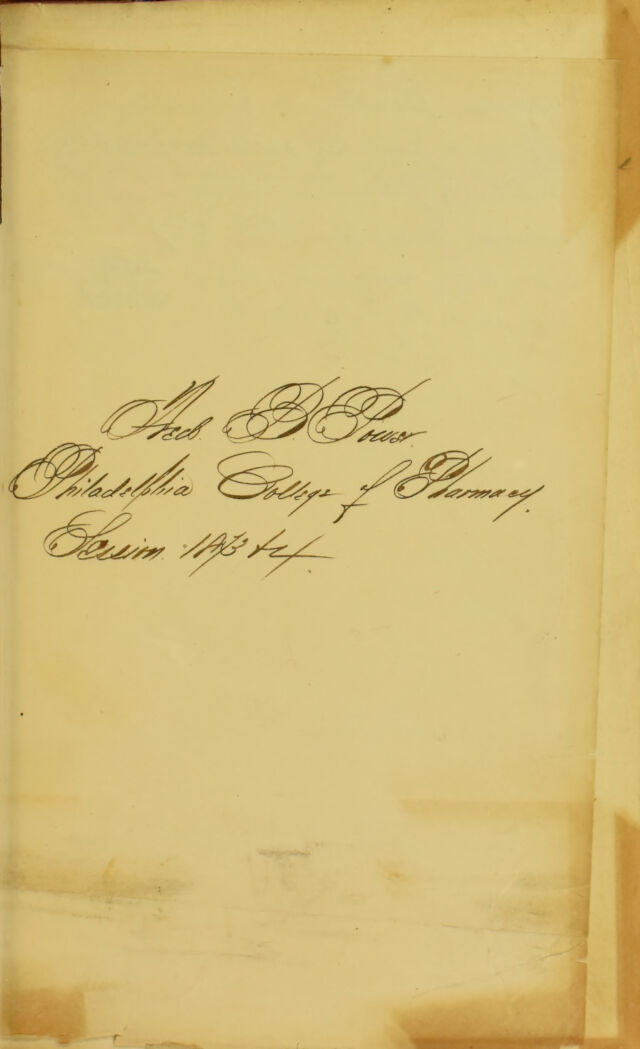 Fred. B. Power.
Philadelphia College of Pharmacy.
Session. 1873 & 4.